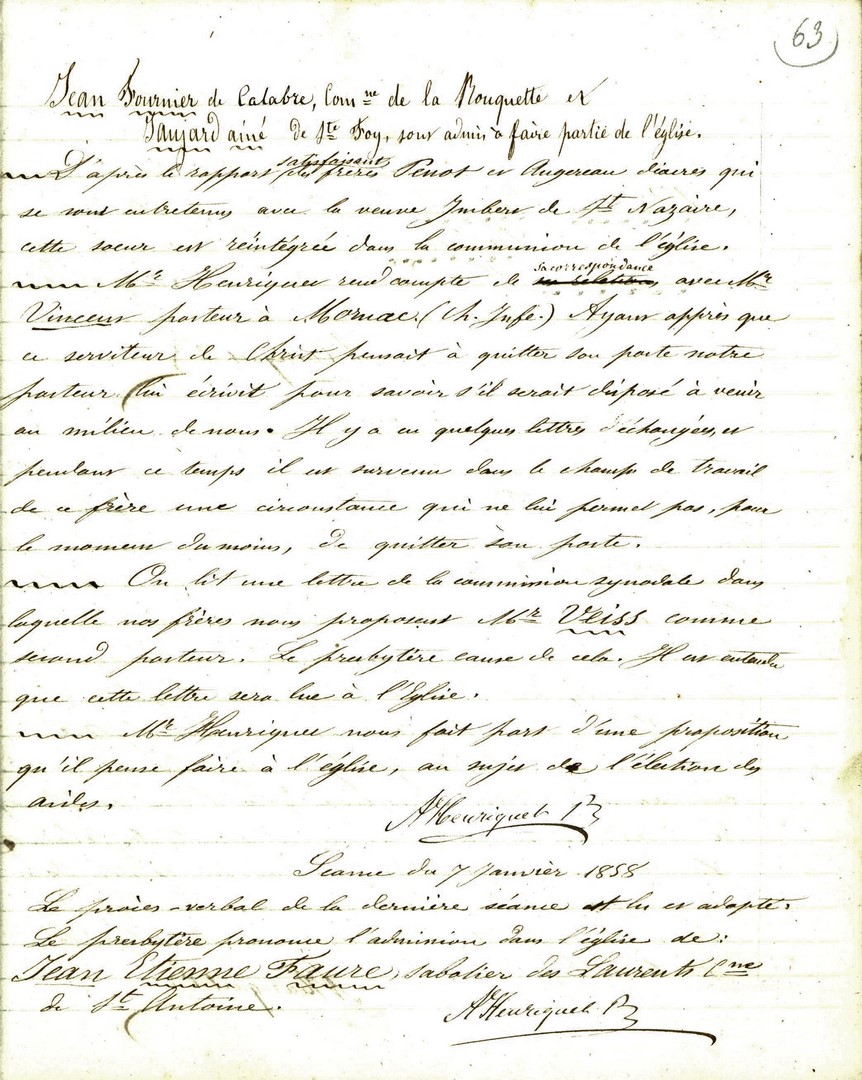 63
Jean Fournier de Calabre, Com^ne de la Rouquette et
Jaujard ainé de S^te Foy, sont admis à faire partie de l'église.
D'après le rapport satisfaisant des frères Penot et Augereau diacres qui
se sont entretenus avec la veuve Imbert de S^t Nazaire,
cette soeur est réintégrée dans la communion de l'église.
M^r Henriquet rend compte de sa correspondance ses relations avec M^r
Vincent pasteur à Mornac (Ch. Infe.) Ayant appris que
ce serviteur de Christ pensait à quitter son poste notre
pasteur lui écrivit pour savoir s'il serait disposé à venir
au milieu de nous. Il y a eu quelques lettres d'échangées, et
pendant ce temps il est survenu dans le champs de travail
de ce frère une circonstance qui ne lui permet pas, pour
le moment du moins, de quitter son poste.
On lit une lettre de la commission synodale dans
laquelle nos frères nous proposent M^r Veiss comme
second pasteur. Le presbytère cause de cela. Il est entendu
que cette lettre sera lue à l'Eglise.
M^r Henriquet nous fait part d'une proposition
qu'il pense faire à l'église, au sujet de l'élection des
aides.
A^d Henriquet P^r
Séance du 7 Janvier 1858
Le procès-verbal de la dernière séance est lu et adopté.
Le presbytère prononce l'admission dans l'église de:
Jean Etienne Faure, sabotier des Laurents C^ne
de S^t Antoine.
A^d Henriquet P^r